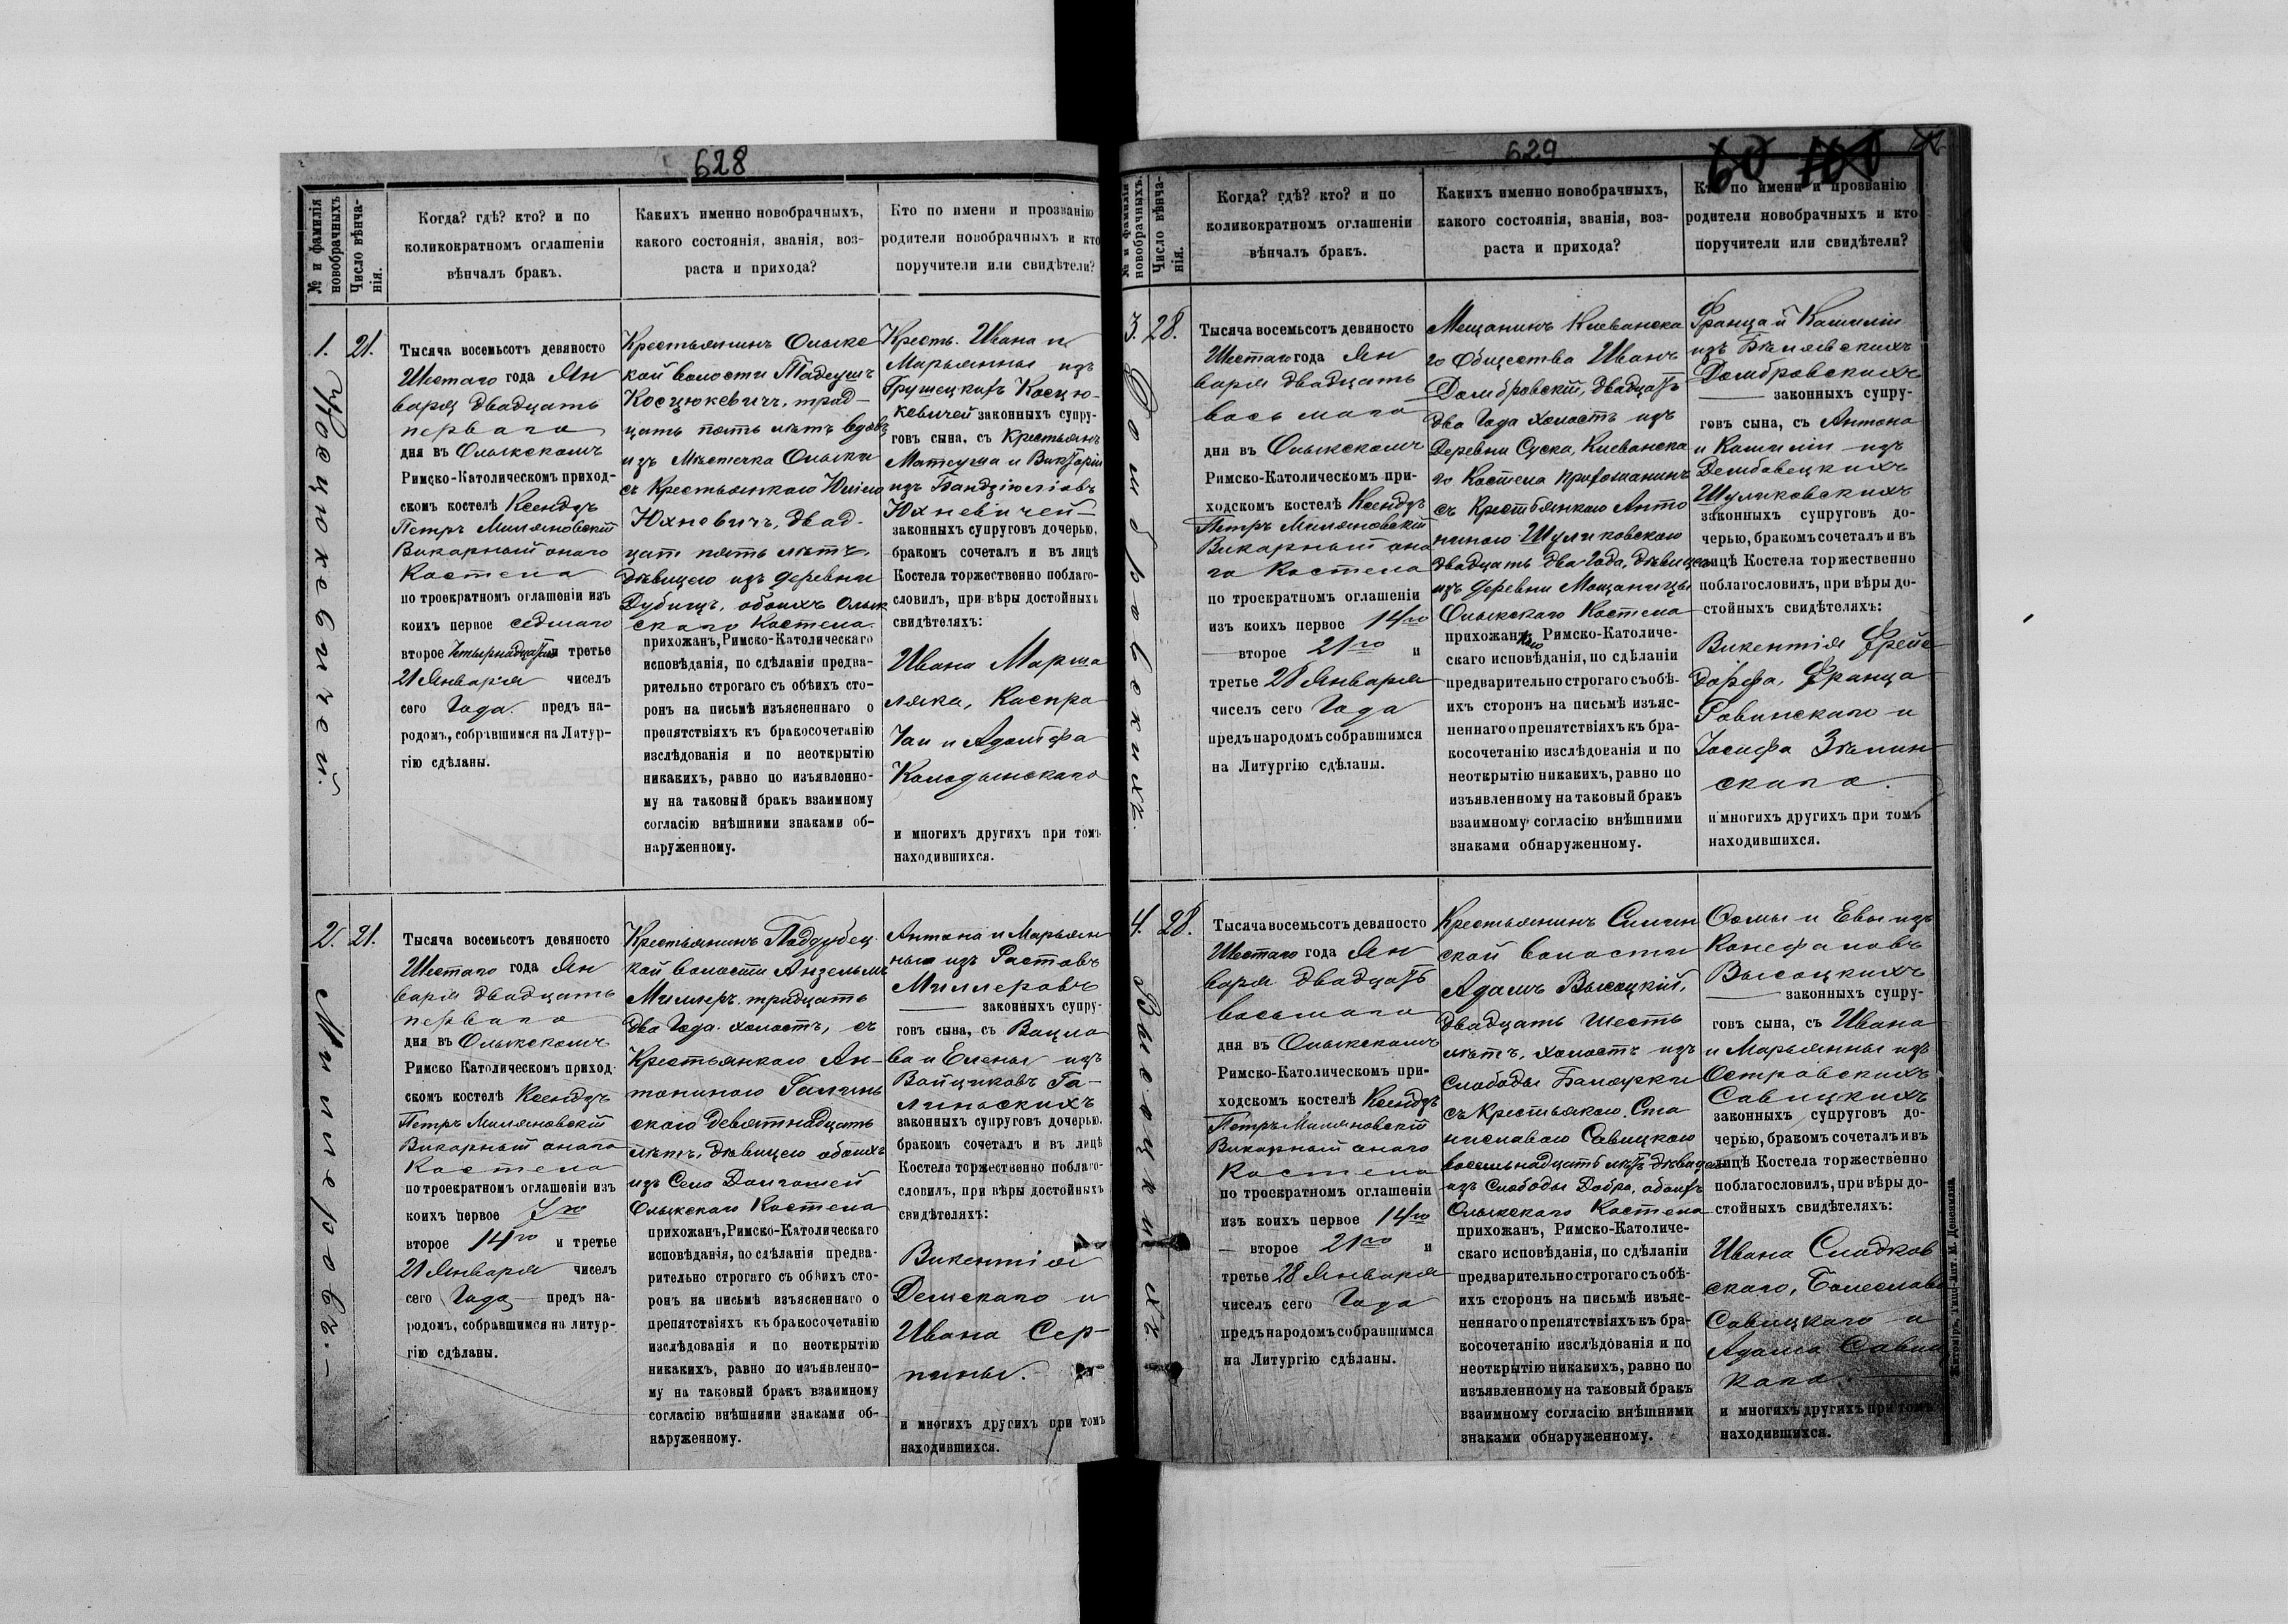 628
№ и фамилія новобрачныхъ
Число вѣнча-
нія.
Когда? гдѣ? кто? и по
коликократномъ оглашеніи
вѣнчалъ бракъ.
Какихъ именно новобрачныхъ,
какого состоянія, званія, воз-
раста и прихода?
Кто по имени и прозванію
родители новобрачныхъ и кто
поручители или свидѣтели?
1.
Косцюкевичей.
21.
Тысяча восемьсотъ девяносто
Шестаго года Ян
варя двадцать
перваго
дня въ Олыкскомъ
Римско-Католическомъ приход-
скомъ костелѣ Ксендзъ
Петръ Миляновскій
Викарный онаго
Костела
по троекратномъ оглашеніи изъ
коихъ первое седмаго
второе четырнадцатаго и третье
21 Января чиселъ
сего Года. предъ на-
родомъ, собравшимся на Литур-
гію сдѣланы.
Крестьянинъ Олыкс
кой волости Тадеушъ
Косцюкевичъ, трид-
цать пять лѣтъ вдовъ
изъ Мѣстечка Олыки
съ Крестьянкою Юліею
Юхновичъ, двад-
цать пять лѣтъ,
дѣвицею изъ деревни
Дубищъ, обоихъ Олык
скаго Костела
прихожанъ, Римско-Католическаго
исповѣданія, по сдѣланіи предва-
рительно строгаго съ обѣихъ сто-
ронъ на письмѣ изъясненнаго о
препятствіяхъ къ бракосочетанію
изслѣдованія и по неоткрытію
никакихъ, равно по изъявленно-
му на таковый бракъ взаимному
согласію внѣшними знаками об-
наруженному.
Кресть. Ивана и
Марьянны изъ
Грушецкихъ Косцю-
кевичей законныхъ супру-
говъ сына, съ Крестьянъ
Матеуша и Викторіи
изъ Бандзюліовъ
Юхневичей
законныхъ супруговъ дочерью,
бракомъ сочеталъ и въ лицѣ
Костела торжественно поблаго-
словилъ, при вѣры достойныхъ
свидѣтеляхъ:
Ивана Марша
ляка, Каспра
Чаи и Адольфа
Колодынскаго
и многихъ другихъ при томъ
находившихся.
2.
Миллеровъ.
21.
Тысяча восемьсотъ девяносто
Шестаго года Ян
варя двадцать
перваго
дня въ Олыкскомъ
Римско Католическомъ приход-
скомъ костелѣ Ксендзъ
Петръ Миляновскій
Викарный онаго
Костела
по троекратномъ оглашеніи изъ
коихъ первое 7го
второе 14го и третье
21 Января чиселъ
сего Года предъ на-
родомъ, собравшимся на литур-
гію сдѣланы.
Крестьянинъ Поддубец
кой волости Анзельмъ
Миллеръ. тридцать
два Года. холостъ, съ
Крестьянкою Ан-
тониною Галинь
скою девятнадцать
лѣтъ, дѣвицею обоихъ
изъ Села Долгошей
Олыкскаго Костела
прихожанъ, Римско-Католическаго
исповѣданія, по сдѣланіи предва-
рительно строгаго съ обѣихъ сто-
ронъ на письмѣ изъясненнаго о
препятствіяхъ къ бракосочетанію
изслѣдованія и по неоткрытію
никакихъ, равно по изъявленно-
му на таковый бракъ взаимному
согласію внѣшними знаками об-
наруженному.
Антона и Марьян
ны изъ Ростовъ
Миллеровъ
законныхъ супру-
говъ сына, съ Вацла
ва и Елены изъ
Войциковъ Га-
линьскихъ
законныхъ супруговъ дочерью,
бракомъ сочеталъ и въ лицѣ
Костела торжественно поблаго-
словилъ, при вѣры достойныхъ
свидѣтеляхъ:
Викентія
Демскаго и
Ивана Сер-
пины.
и многихъ другихъ при томъ
находившихся.
629
№ и фамилія новобрачныхъ.
Число вѣнча-
нія.
Когда? гдѣ? кто? и по
коликократномъ оглашеніи
вѣнчалъ бракъ.
Какихъ именно новобрачныхъ,
какого состоянія, званія, воз-
раста и прихода?
Кто по имени и прозванію
родители новобрачныхъ и кто
поручители или свидѣтели?
3.
Домбровскихъ.
28.
Тысяча восемьсотъ девяносто
Шестаго года Ян
варя двадцать
восьмаго
дня въ Олыкскомъ
Римско-Католическомъ при-
ходскомъ костелѣ Ксендзъ
Петръ Миляновскій
Викарный она
го Костела
по троекратномъ оглашеніи
изъ коихъ первое 14го
второе 21го и
третье 28 Января
чиселъ сего Года
предъ народомъ собравшимся
на Литургію сдѣланы.
Мещанинъ Клеванска
го Общества Иванъ
Домбровскій, двадцать
два Года холостъ изъ
Деревни Суска, Клеванска
го Костела прихожанинъ
съ Крестьянкою Анто
ниною Шуликовскою
двадцать два Года, дѣвицею
изъ деревни Мощаницы
Олыкскаго Костела
прихожанкою Римско-Католиче-
скаго исповѣданія, по сдѣланіи
предварительно строгаго съ обѣ-
ихъ сторонъ на письмѣ изъяс-
неннаго о препятствіяхъ къ бра-
косочетанію изслѣдованія и по
неоткрытію никакихъ, равно по
изъявленному на таковый бракъ
взаимному согласію внѣшними
знаками обнаруженному.
Франца и Камиліи
изъ Бѣлявскихъ
Домбровскихъ
законныхъ супру-
говъ сына, съ Антона
и Камиліи изъ
Дембовецкихъ
Шуликовскихъ
законныхъ супруговъ до-
черью, бракомъ сочеталъ и въ
лицѣ Костела торжественно
поблагословилъ, при вѣры до-
стойныхъ свидѣтеляхъ:
Викентія Фрейс
дорфа, Франца
Ровинскаго и
Іосифа Зѣлин
скаго.
и многихъ другихъ при томъ
находившихся.
4.
Высоцкихъ
28.
Тысяча восемьсотъ девяносто
Шестаго года Ян
варя двадцать
восьмаго
дня въ Олыкскомъ
Римско-Католическомъ при-
ходскомъ костелѣ Ксендзъ
Петръ Миляновскій
Викарный онаго
Костела
по троекратномъ оглашеніи
изъ коихъ первое 14го
второе 21го и
третье 28 Января
чиселъ сего Года
предъ народомъ собравшимся
на Литургію сдѣланы.
Крестьянинъ Силин
ской волости
Адамъ Высоцкій,
двадцать шесть
лѣтъ, холостъ изъ
Слободы Балярки
съ Крестьякою. Ста
ниславою Савицкою
восемьнадцать лѣтъ дѣвицею
изъ Слободы Добра, обоихъ
Олыкскаго Костела
прихожанъ, Римско-Католиче-
скаго исповѣданія, по сдѣланіи
предварительно строгаго съ обѣ-
ихъ сторонъ на письмѣ изъяс-
неннаго о препятствіяхъ къ бра-
косочетанію изслѣдованія и по
неоткрытію никакихъ, равно по
изъявленному на таковый бракъ
взаимному согласію внѣшними
знаками обнаруженному.
Ѳомы и Евы изъ
Конефаловъ
Высоцкихъ
законныхъ супру-
говъ сына, съ Ивана
и Марьянны изъ
Островскихъ
Савицкихъ
законныхъ супруговъ до-
черью, бракомъ сочеталъ и въ
лицѣ Костела торжественно
поблагословилъ, при вѣры до-
стойныхъ свидѣтеляхъ:
Ивана Сладков
скаго, Болеслава
Савицкаго и
Адама Савиц
каго.
и многихъ другихъ при томъ
находившихся.
Житоміръ, Типо-Лит. М. Дененмана